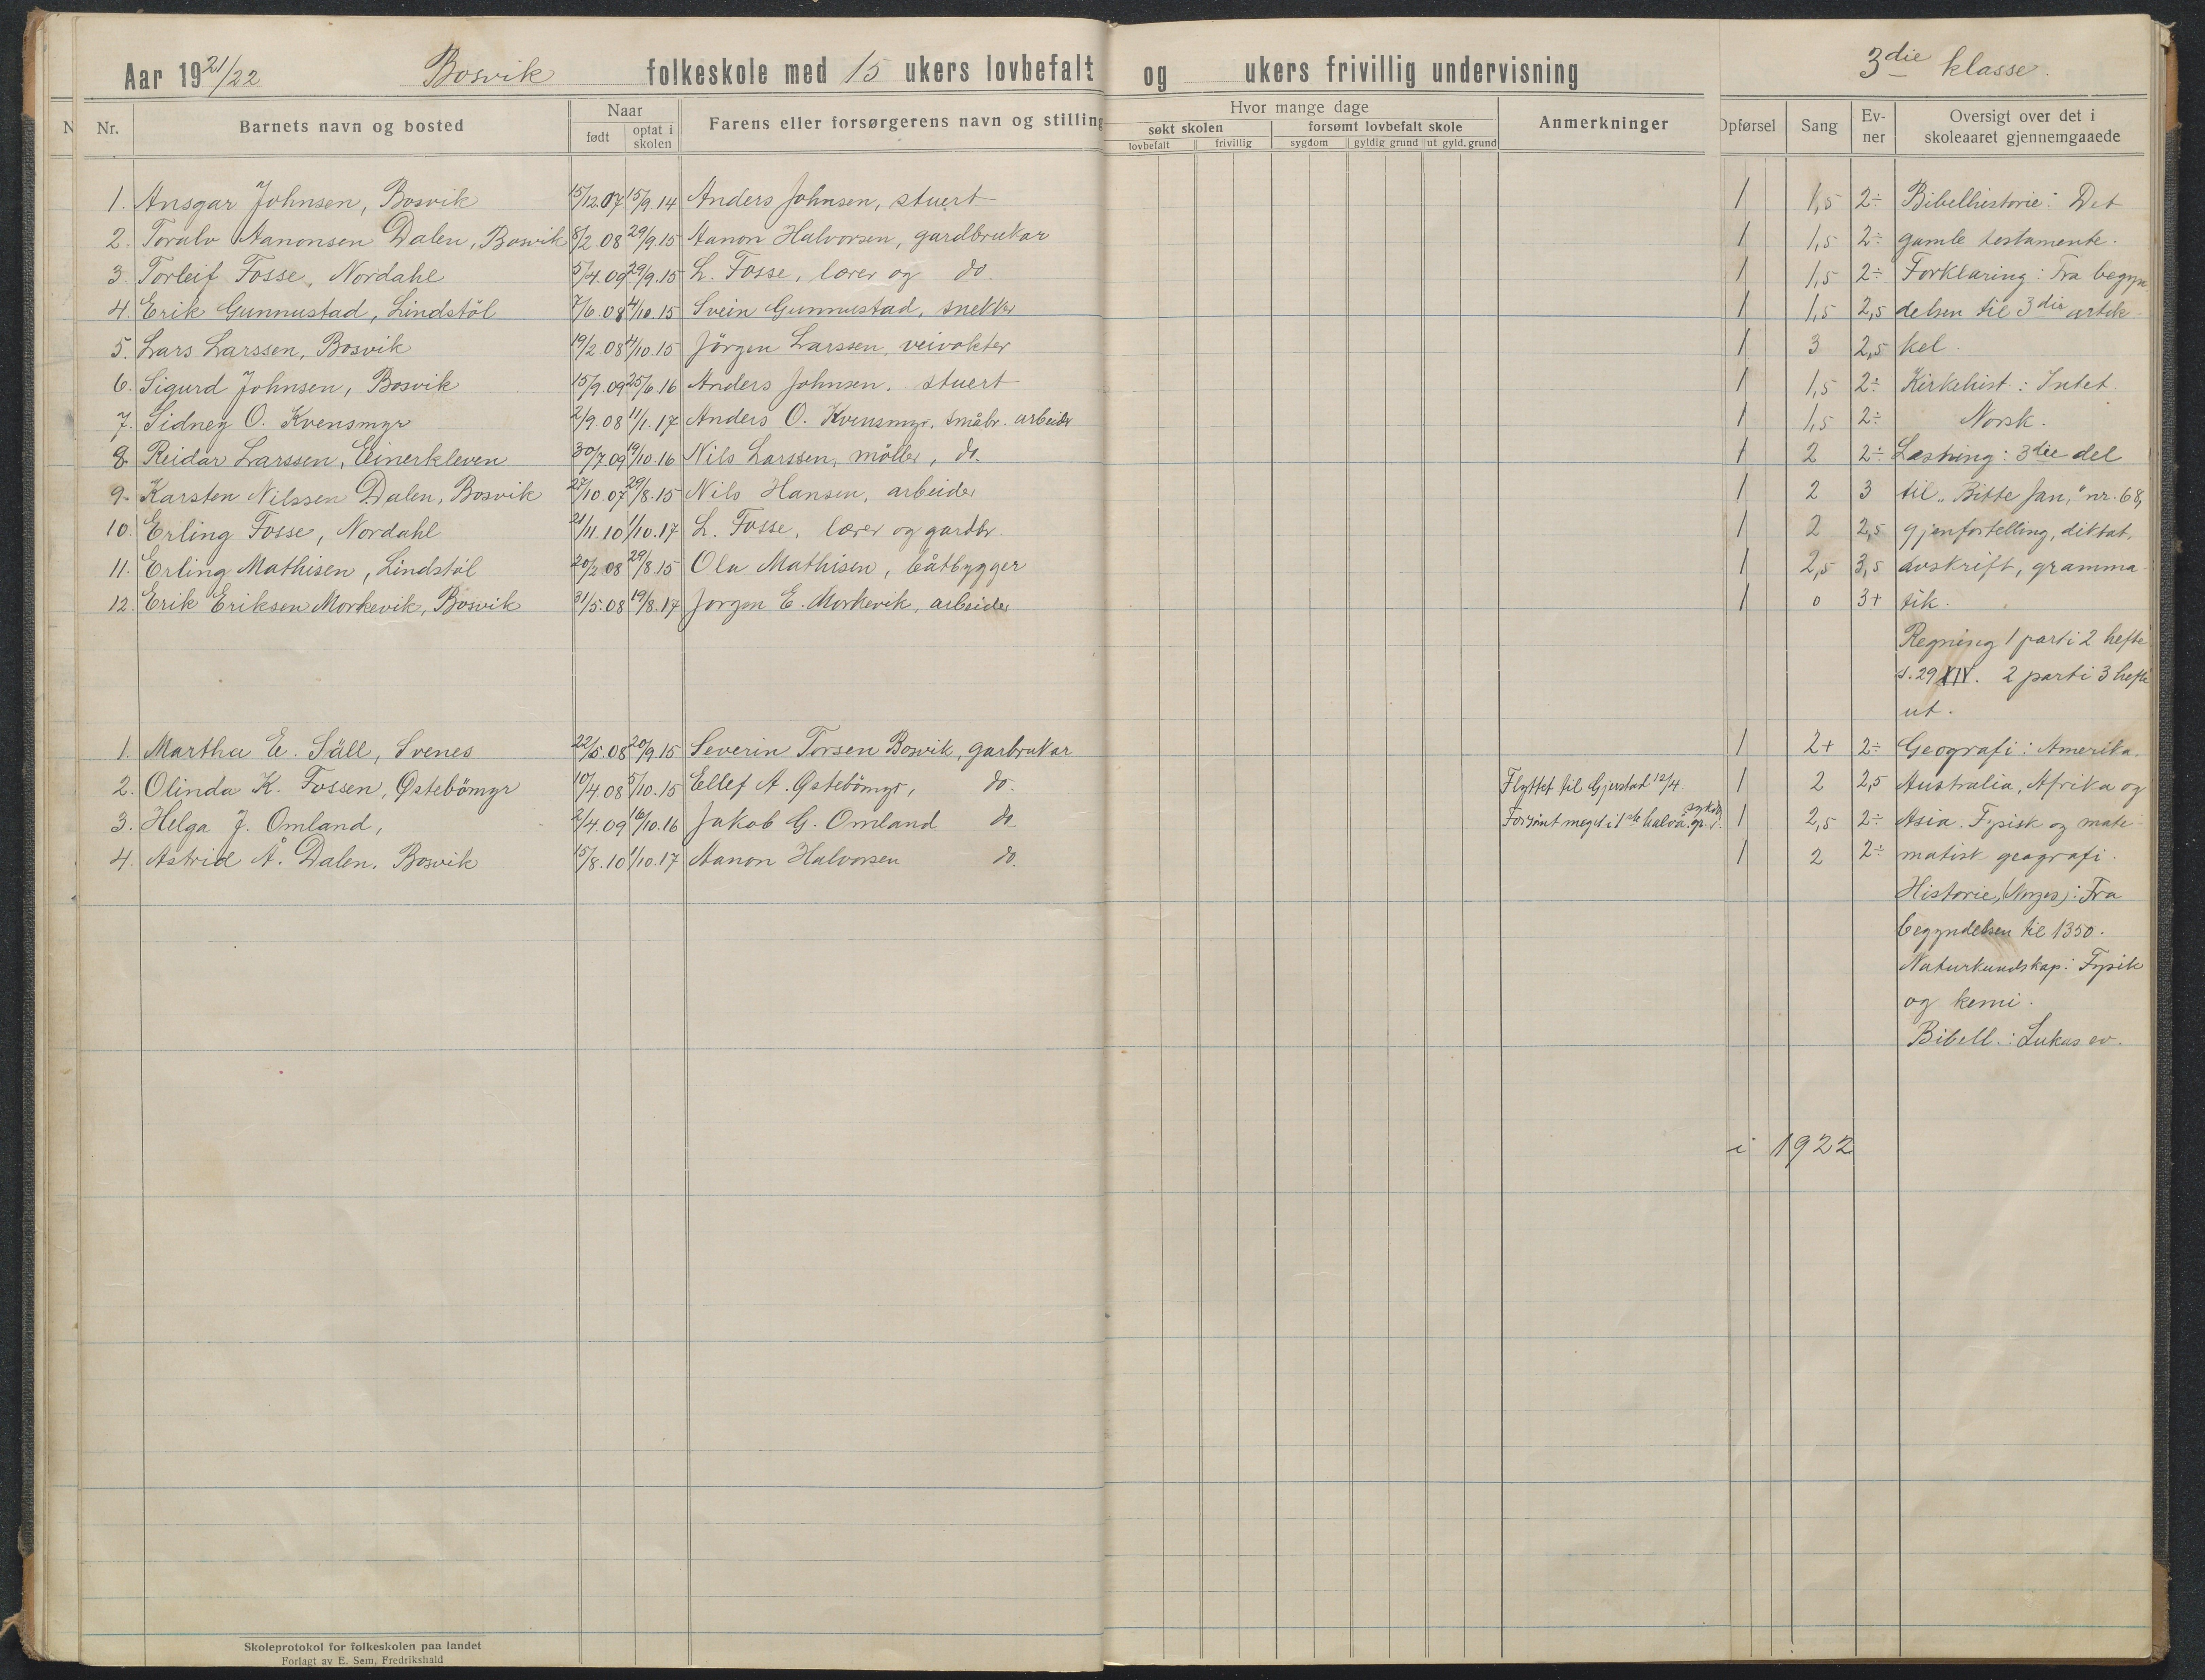 Aar 1921/22 Bosvik folkeskole med 15 ukers lovbefalt og ukers frivillig undervisning 3die klasse.
N Nr. Barnets navn og bosted Naar født optat i skolen Farens eller forsørgerens navn og stilling Hvor mange dage søkt skolen lovbefalt frivillig forsømt lovbefalt skole sygdom gyldig grund ut gyld. grund Anmerkninger Opførsel Sang Evner Oversigt over det i skoleaaret gjennemgaaede
1. Ansgar Johnsen, Bosvik 15/12.07 15/9.14 Anders Johnsen, stuert 1 1,5 2÷ Bibelhistorie: Det
2. Toralv Aanonsen Dalen, Bosvik 8/2.08 29/9.15 Aanon Halvorsen, gardbrukar 1 1,5 2÷ gamle testamente.
3. Torleif Fosse, Nordahl 5/4.09 29/9.15 L. Fosse, lærer og do. 1 1,5 2÷ Forklaring: Fra begyn
4. Erik Gunnustad, Lindstöl 7/6.08 4/10.15 Svein Gunnustad, snekker 1 1,5 2,5 delsen til 3die artik-
5. Lars Larssen, Bosvik 19/2.08 4/10.15 Jörgen Larssen, veivokter 1 3 2,5 kel.
6. Sigurd Johnsen, Bosvik 15/9.09 25/6.16 Anders Johnsen, stuert 1 1,5 2÷ Kirkehist: Intet.
7. Sidney O. Kvensmyr 2/9.08 11/1.17 Anders O. Kvensmyr, småbr. arbeider 1 1,5 2÷ Norsk.
8. Reidar Larssen, Einerkleven 30/7.09 19/10.16 Nils Larssen, möller, do. 1 2 2÷ Læsning: 3die del
9. Karsten Nilssen Dalen, Bosvik 27/10.07 29/8.15 Nils Hansen, arbeider 1 2 3 til "Bitte Jan," nr. 68,
10. Erling Fosse, Nordahl 21/11.10 1/10.17 L. Fosse, lærer og gardbr. 1 2 2,5 gjenfortelling, diktat,
11. Erling Mathisen, Lindstöl 20/2 08 29/8.15 Ola Mathisen, båtbygger 1 2,5 3,5 avskrift, gramma-
12. Erik Eriksen Morkevik, Bosvik 31/5.08 19/8.17 Jorgen E. Morkevik, arbeider 1 0 3+ tik.
Regning 1 parti 2 hefte
s. 29 XIV. 2 parti 3 hefte
ut.
1. Martha E. Säll, Svenes 22/5.08 20/9.15 Severin Torsen Bosvik, garbrukar 1 2+ 2÷ Geografi: Amerika.
2. Olinda K. Fossen, Østebömyr 10/4 08 5/10.15 Ellef A. Østebömyr, do. Flyttet til Gjerstad 12/4. 1 2 2,5 Australia, Afrika og
3. Helga J. Omland, 2/4.09 16/10.16 Jakob G. Omland do Forsömt meget i 1ste halvå. gr. 1 2,5 2÷ Asia. Fysisk og mate-
4. Astrid Å. Dalen, Bosvik 15/8.10 1/10.17 Aanon Halvorsen do. 1 2 2÷ matisk geografi.
Historie, (Norges): Fra
begyndelsen til 1350.
Naturkundskap: Fysik
og kemi.
Bibell.: Lukas ev.
i 1922
Skoleprotokol for folkeskolen paa landet
Forlagt av E. Sem, Fredrikshald